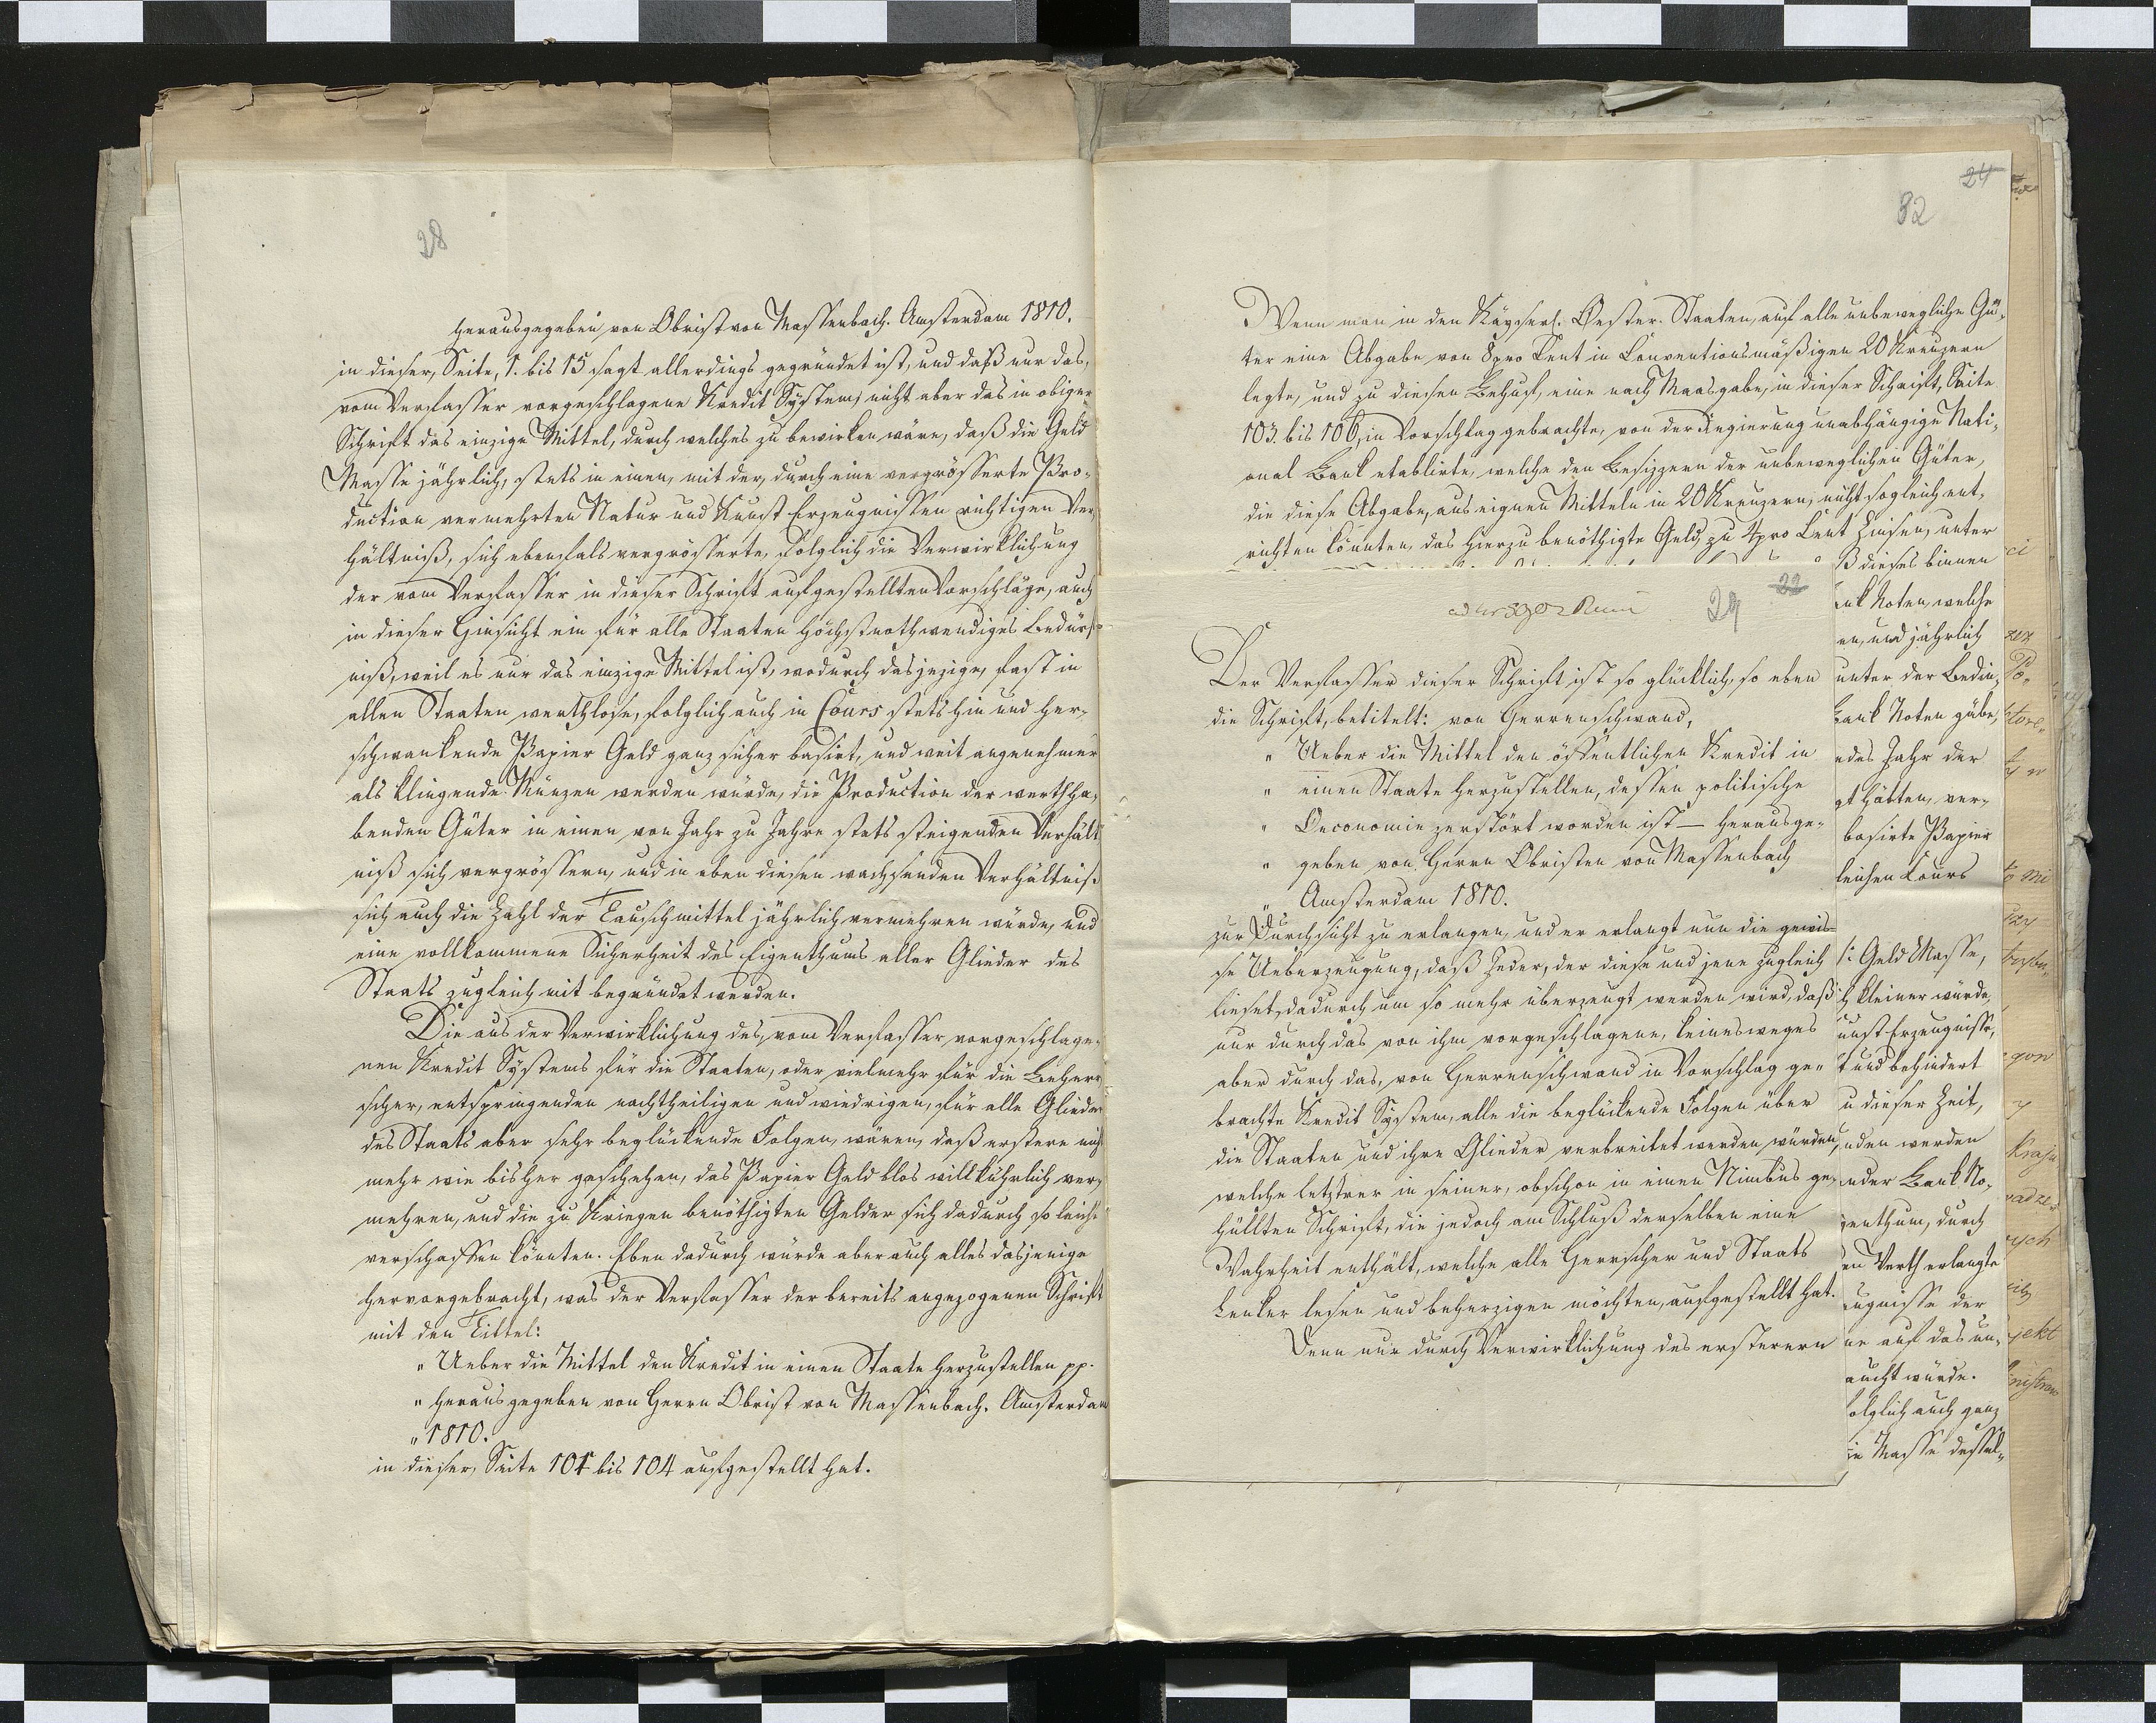 28
herausgegeben von Obrist von Massenbach. Amsterdam 1810.
in dieser, Seite, 1. bis 15 sagt allerdings gegründet ist, und daß nur das,
vom Verfasser vorgeschlagene Kredit System, nicht aber das in obiger
Schrift das einzige Mittel, durch welches zu bewirken wäre, daß die Geld
Masse jährlich, stets in einen, mit der, durch eine vergrösserte Pro-
duction vermehrten Natur und Kunst Erzeugnissen richtigen Ver-
hältniß, sich ebenfals vergrösserte, folglich die Verwirklichung
der vom Verfasser in dieser Schrift aufgestellten Vorschläge, auch
in dieser Hinsicht ein für alle Staaten höchstnothwendiges Bedürf-
niß, weil es nur das einzige Mittel ist, wodurch das jezige, fast in
allen Staaten werthlose, folglich auch in Cours stets hin und her-
schwankende Papier Geld ganz sicher basirt, und weit angenehmer
als klingende Münzen werden würde, die Production der werthha-
benden Güter in einen von Jahr zu Jahre stets steigenden Verhält
niß sich vergrössern, und in eben diesen wachsenden Verhältniß
sich auch die Zahl der Tauschmittel jährlich vermehren würde, und
eine vollkommene Sicherheit des Eigenthums aller Glieder des
Staats zugleich mit begründet werden.
Die aus der Verwirklichung des, vom Verfasser vorgeschlage-
nen Kredit Systems für die Staaten, oder vielmehr für die Beherr
scher, entspringenden nachtheiligen und wiedrigen, für alle Glieder
des Staats aber sehr beglückende Folgen, wären, daß erstere nicht
mehr wie bisher geschehen, das Papier Geld blos willkührlich ver-
mehren, und die zu Kriegen benöthigten Gelder sich dadurch so leicht
verschaffen könnten. Eben dadurch würde aber auch alles dasjenige
hervorgebracht, was der Verfasser der bereits angezogenen Schrift
mit den Tittel:
" Ueber die Mittel den Kredit in einen Staate herzustellen pp.
" herausgegeben von Herrn Obrist von Massenbach. Amsterdam
" 1810.
in dieser, Seite 101 bis 104 aufgestellt hat.
24
32
Wenn man in den Kayserl. Oester. Staaten, auf alle unbewegliche Gü-
ter eine Abgabe von 8 pro Cent in Conventionsmäßigen 20 Kreuzern
legte, und zu diesen Behuf, eine nach Maasgabe, in dieser Schrift, Seite
103. bis 106, in Vorschlag gebrachte, von der Regierung unabhängige Nati-
onal Bank etablirte, welche den Besizzern der unbeweglichen Güter,
die diese Abgabe, aus eignen Mitteln in 20 Kreuzern, nicht sogleich ent-
richten könnten, das hierzu benöthigte Geld, zu 4 pro Cent Zinsen, unter
22
29
Der Verfasser dieser Schrift ist so glücklich, so eben
die Schrift, betitelt: von Herrenschwand,
" Ueber die Mittel den öffentlichen Kredit in
" einen Staate herzustellen, dessen politische
" Oeconomie zerstört worden ist — herausge-
" geben von Herrn Obristen von Massenbach
" Amsterdam 1810.
zur Durchsicht zu erlangen, und er erlangt nun die gewis-
se Ueberzeugung, daß Jeder, der diese und jene zugleich
lieset, dadurch um so mehr überzeugt werden wird, daß
nur durch das von ihm vorgeschlagene, keinesweges
aber durch das, von Herrenschwand in Vorschlag ge-
brachte Kredit System, alle die beglückende Folgen über
die Staaten und ihre Glieder verbreitet werden würden,
welche letztrer in seiner, obschon in einen Nimbus ge-
hüllten Schrift, die jedoch am Schluß derselben eine
Wahrheit enthält, welche alle Herrscher und Staats
Lenker lesen und beherzigen möchten, aufgestellt hat.
Denn nur durch Verwirklichung des ersterern
ß dieses binnen
nk Noten, welche
en, und jährlich
unter der Bedin-
Bank Noten gäbe,
edes Jahr der
gt hätten, ver-
basirte Papier
leichen Cours
/: Geld Masse,
h kleiner würde,
unst Erzeugnisse,
t und behindert
u dieser Zeit,
nden werden
nder Bank No-
genthum, durch
en Werth erlangte
eugnisse der
ne auf das un-
aucht würde.
olglich auch ganz
ie Masse dessel-
ci
gow
kraju
ych
jekt